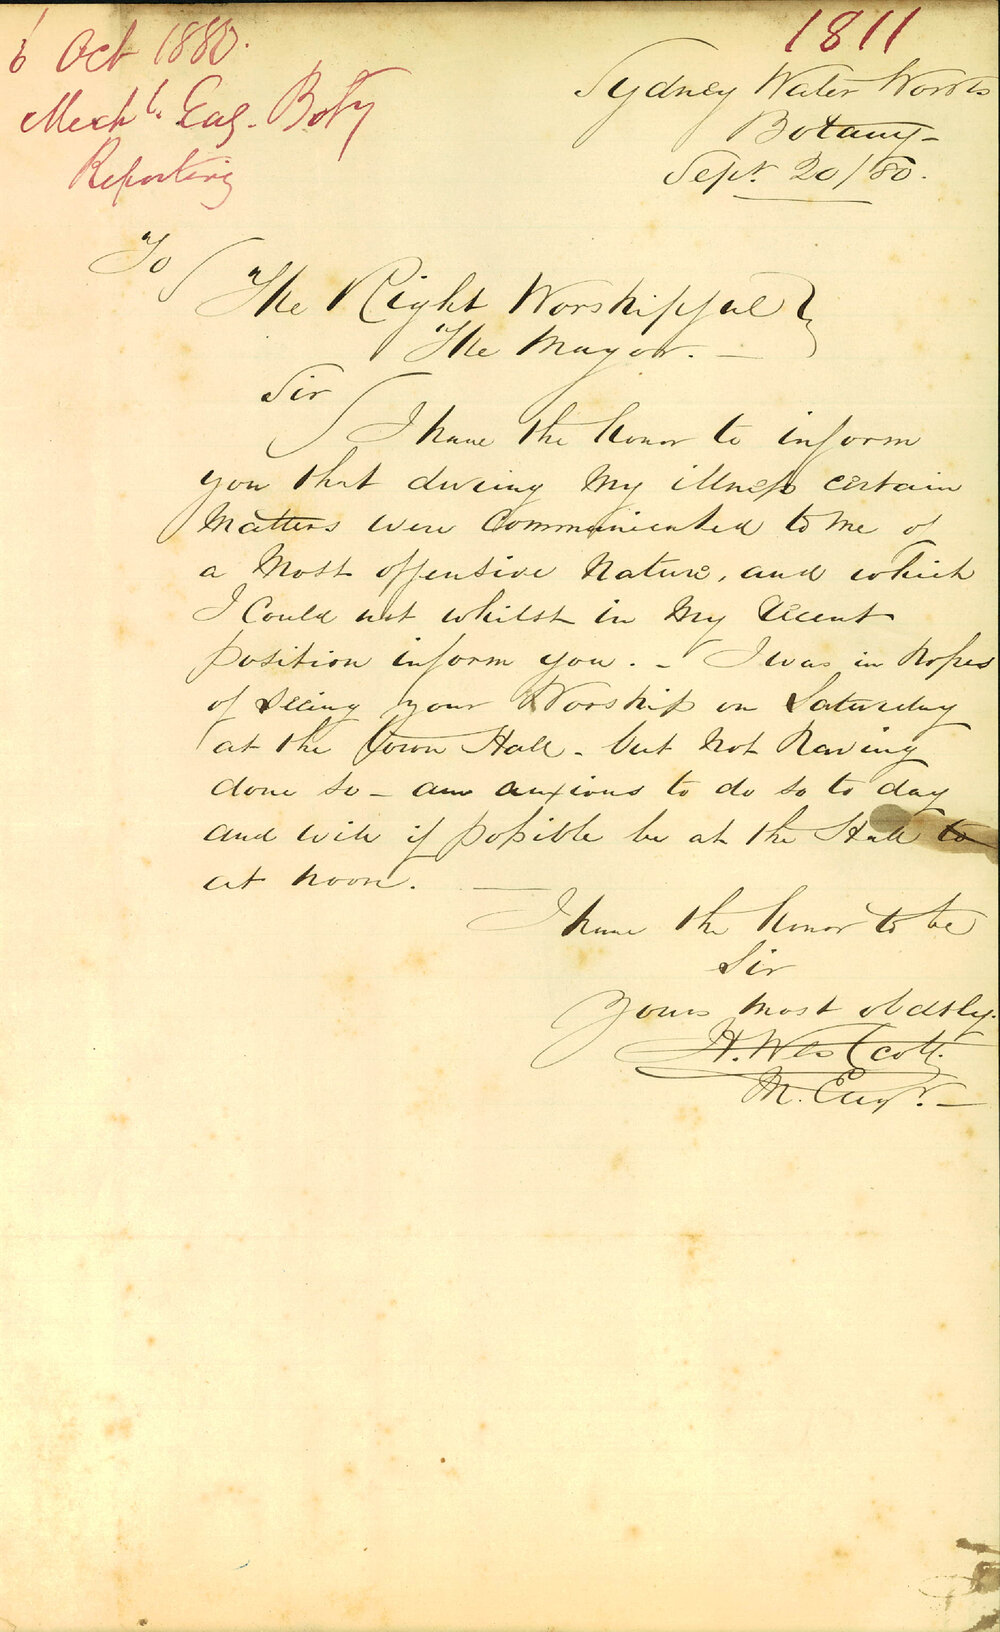 6 Oct 1880.
Mechl. Eng. Boty
Reporting
1811
Sydney Water Works
Botany -
Sept. 20/80.
To
The Right Worshipful
The Mayor. -
Sir
I have the honor to inform
you that during my illness certain
matters were communicated to me of
a most offensive nature, and which
I could not whilst in my recent
position inform you. - I was in hopes
of seeing your Worship on Saturday
at the Town Hall - but not having
done so - am anxious to do so to day
and will if possible be at the Hall to
at noon. -
I have the honor to be
Sir
Yours most obdtly.
H. Westcott.
M. Engr. -